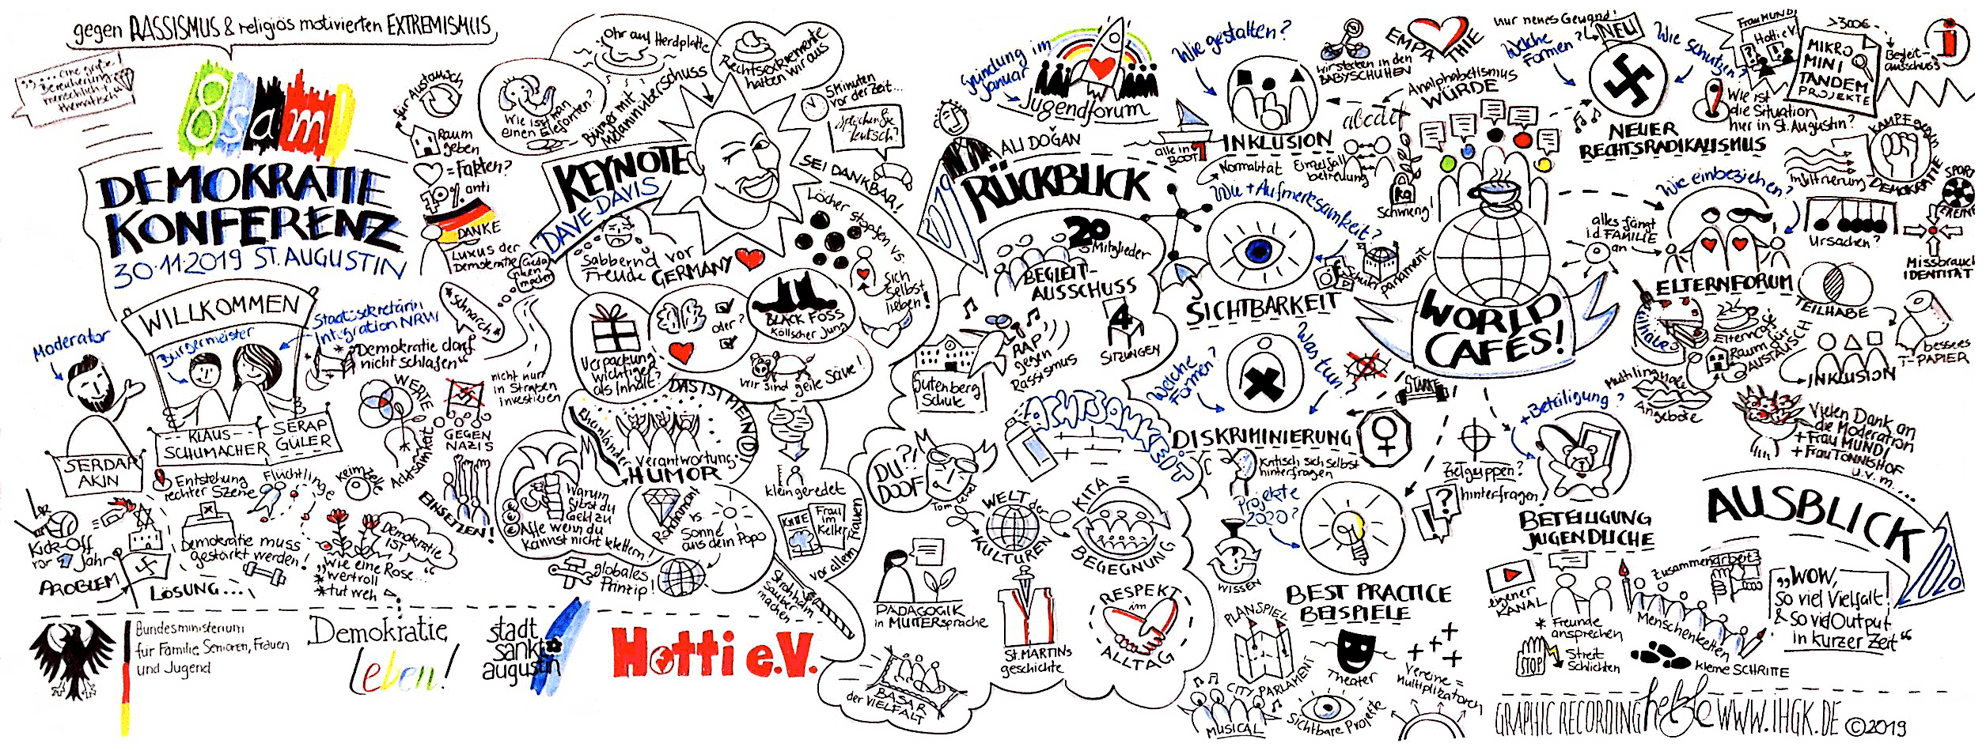 gegen RASSISMUS & religiös motivierten EXTREMISMUS
8sam!
DEMOKRATIE
KONFERENZ
30.11.2019 ST. AUGUSTIN
WILLKOMMEN
Moderator
Bürgermeister
Staatssekretärin
Integration NRW
"Demokratie darf
nicht schlafen"
*Schnarch*
SERDAR
AKIN
KLAUS
SCHUMACHER
SERAP
GÜLER
für Austausch
Raum
geben
= Fakten?
anti
DANKE
LUXUS der
Demokratie
WERTE
* Achtsamkeit
GEGEN
NAZIS
nicht nur
in Straßen
investieren
EINSETZEN!
Kick-Off
vor 9 Jahr
PROBLEM
Entstehung
rechter Szene
Flüchtlinge
Keimzelle
Demokratie muss
gestärkt werden!
LÖSUNG...
Demokratie
IST
"Wie eine Rose..."
* wertvoll
* tut weh
Bundesministerium
für Familie, Senioren, Frauen
und Jugend
Demokratie
leben!
stadt
sankt
augustin
Hotti e.V.
KEYNOTE
DAVE DAVIS
Wie isst man
einen Elefanten?
Ohr auf Herdplatte
Bürger mit
Melaninüberschuss
Rechtsextreme
haben wir aus
5 Minuten
vor der Zeit...
Sprechen Sie
deutsch?
SEI DANKBAR!
Sabbernd vor
Freude
GERMANY
Löcher stopfen vs
Sich
Selbst
lieben!
BLÄCK FÖSS
Kölscher Jung
oder?
Verpackung
wichtiger
als Inhalt?
Wir sind geile Säue!
DAS IST MEIN DJ
Rheinländer
Verantwortung
HUMOR
Warum
gibst du
Geld zu
Alle wenn du
kannst nicht lebettern!
Rohdiamant
vs
Sonne
aus dein Popo
globales
Prinzip!
kleingeredet
Frau
im
Keller
vor allem Frauen
Strohhalm
sauber
machen
Gründung im
Januar
Jugendforum
ALI DOĞAN
RÜCKBLICK
2019
20
Mitglieder
BEGLEIT-
AUSSCHUSS
4
SITZUNGEN
RAP
gegen
Rassismus
Gutenberg
Schule
ACHTSAMKEIT
DU
DOOF
?!
Tom
WELT der
KULTUREN
KITA =
BEGEGNUNG
PÄDAGOGIK
in MUTTERsprache
St. MARTINs
geschichte
RESPEKT
im
ALLTAG
BASAR
der VIELFALT
Wie gestalten?
INKLUSION
alle in 1
BOOT
Normalität
Einzelfall
betreuung
Wir stecken in den
BABYSCHUHEN
EMPATHIE
Analphabetismus
WÜRDE
abcdef
KG
Schwer!
Wo + Aufmerksamkeit?
SICHTBARKEIT
Welche
Formen?
Was tun?
DISKRIMINIERUNG
STÄRKE
Kritisch sich selbst
hinterfragen
Zielgruppen?
hinterfragen
Projekte
2020?
WISSEN
BEST PRACTICE
BEISPIELE
PLANSPIEL
CITY PARLAMENT
MUSICAL
Theater
Sichtbare Projekte
Vereine =
multiplikatoren
WORLD
CAFÉS!
nur neues Gewand!
NEU
Welche
Formen?
Wie schützen?
NEUER
RECHTSRADIKALISMUS
Wie ist
die Situation
hier in St. Augustin?
Frau MUNDI
Hotti e.V.
>3000€
MIKRO
MINI
TANDEM
PROJEKTE
Begleit-
ausschuss
KAMPF gegen
DEMOKRATIE
SPORT
VEREINE
Ursachen?
Missbrauch
IDENTITÄT
Wie einbeziehen?
alles fängt
i.d. FAMILIE
an
ELTERNFORUM
TEILHABE
Elterncafé
Raum für
AUSTAUSCH
Multilinguale
Angebote
INKLUSION
besseres
T-PAPIER
+ Beteiligung?
BETEILIGUNG
JUGENDLICHE
eigener
KANAL
* Freunde
ansprechen
STOP
Streit
Schlichten
Zusammenarbeit
Menschenketten
kleine SCHRITTE
Vielen Dank an
die Moderation
+ Frau MUNDI
+ Frau TÖNNISHOF
u.v.m....
AUSBLICK
2020
"WOW,
so viel Vielfalt
& so viel Output
in kurzer Zeit"
GRAPHIC RECORDING WWW.IHGK.DE ©2019